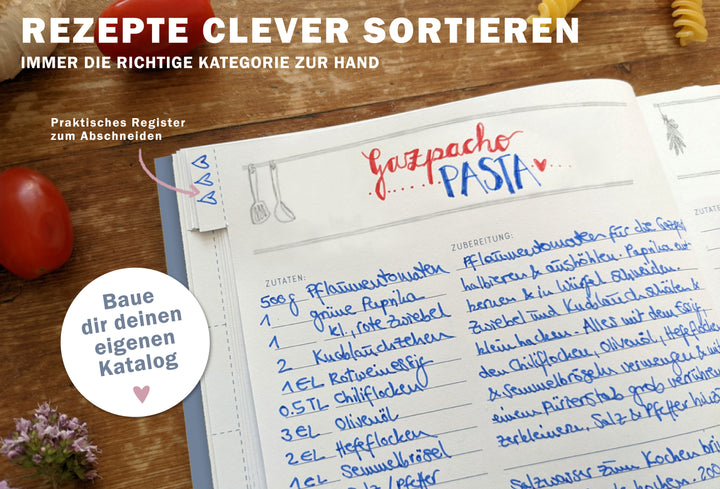 REZEPTE CLEVER SORTIEREN
IMMER DIE RICHTIGE KATEGORIE ZUR HAND
Praktisches Register
zum Abschneiden
Baue
dir deinen
eigenen
Katalog
Gazpacho
PASTA
ZUTATEN:
500g Pflaumentomaten
1 grüne Paprika
1 kl., rote Zwiebel
2 Knoblauchzehen
1 EL Rotweinessig
0.5 TL Chiliflocken
3 EL Olivenöl
2 EL Hefeflocken
1 EL Semmelbrösel
Salz/Pfeffer
ZUBEREITUNG:
Pflaumentomaten für die
halbieren & aushöhlen. Paprika ent
kernen & in Würfel schneiden.
Zwiebel und Knoblauch schälen &
klein hacken. Alles mit dem Essig,
den Chiliflocken, Olivenöl, Hefeflocken
& Semmelbröseln vermengen &
einem Pürierstab grob
zerkleinern. Salz & Pfeffer
Salzwasser zum Kochen
kochen. 200
ZUTATE